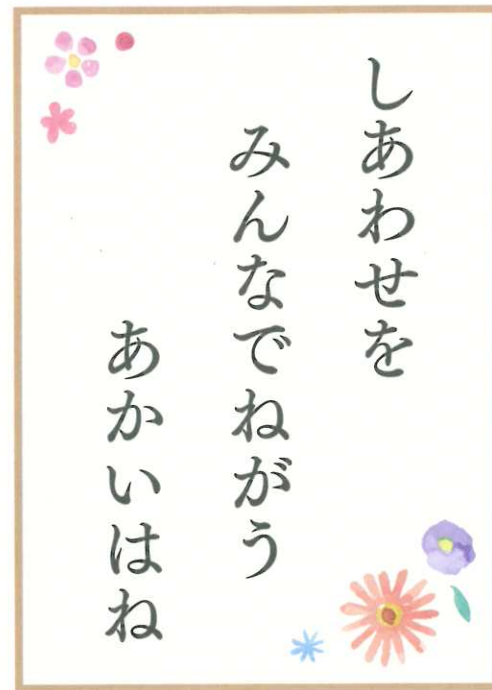 しあわせを
みんなでねがう
あかいはね